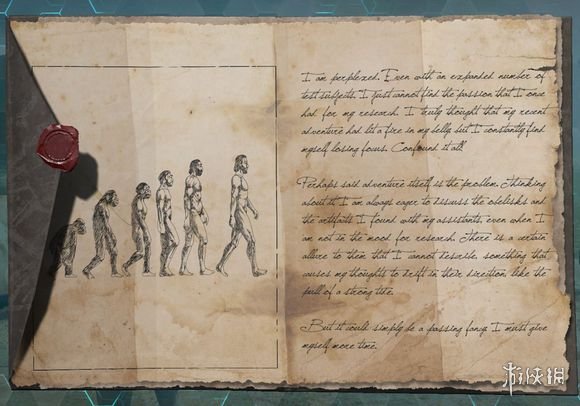 I am perplexed. Even with an expanded number of
test subjects, I just cannot find the passion that I once
had for my research. I truly thought that my recent
adventure had lit a fire in my belly, but I constantly find
myself losing focus. Confound it all!
Perhaps said adventure itself is the problem. Thinking
about it, I am always eager to discuss the obelisks and
the artifacts I found with my assistants, even when I
am not in the mood for research. There is a certain
allure to them that I cannot describe, something that
causes my thoughts to drift in their direction, like the
pull of a strong tide.
But it could simply be a passing fancy. I must give
myself more time.
游侠网